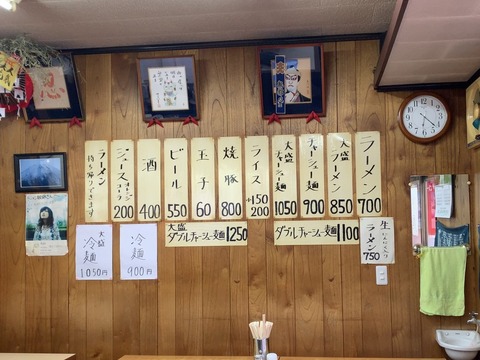 ラーメン
700
大盛
ラーメン
850
チャーシュー麺
900
大盛
チャーシュー麺
1050
ライス
小150
200
焼豚
800
玉子
60
ビール
550
酒
400
ジュース
オレンジ
コーラ
200
ラーメン
持ち帰りできます
生
にんにく入り
ラーメン
750
ダブルチャーシュー麺1100
大盛
ダブルチャーシュー麺1250
冷麺
900円
大盛
冷麺
1050円
忍